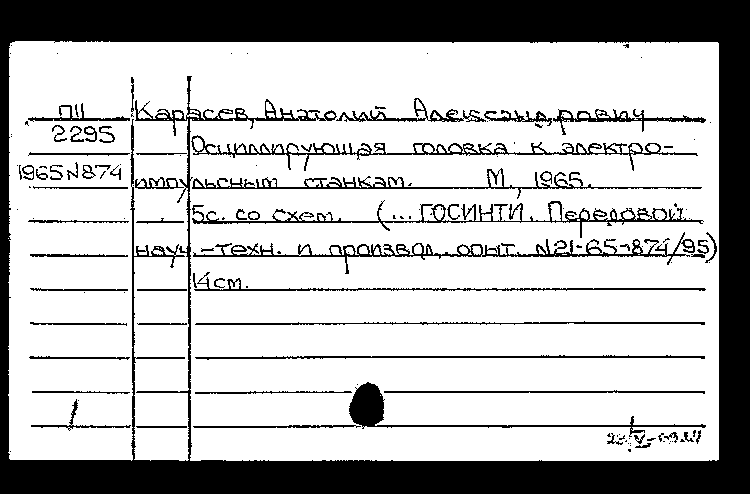 ПII Карасев, Анатолий Александрович
2295
Осциллирующая головка к электро-
1965 N874 импульсным станкам. М., 1965.
5с. со схем. (... ГОСИНТИ. Передовой
науч.-техн. и производ. опыт. N21-65-874/95)
14см.